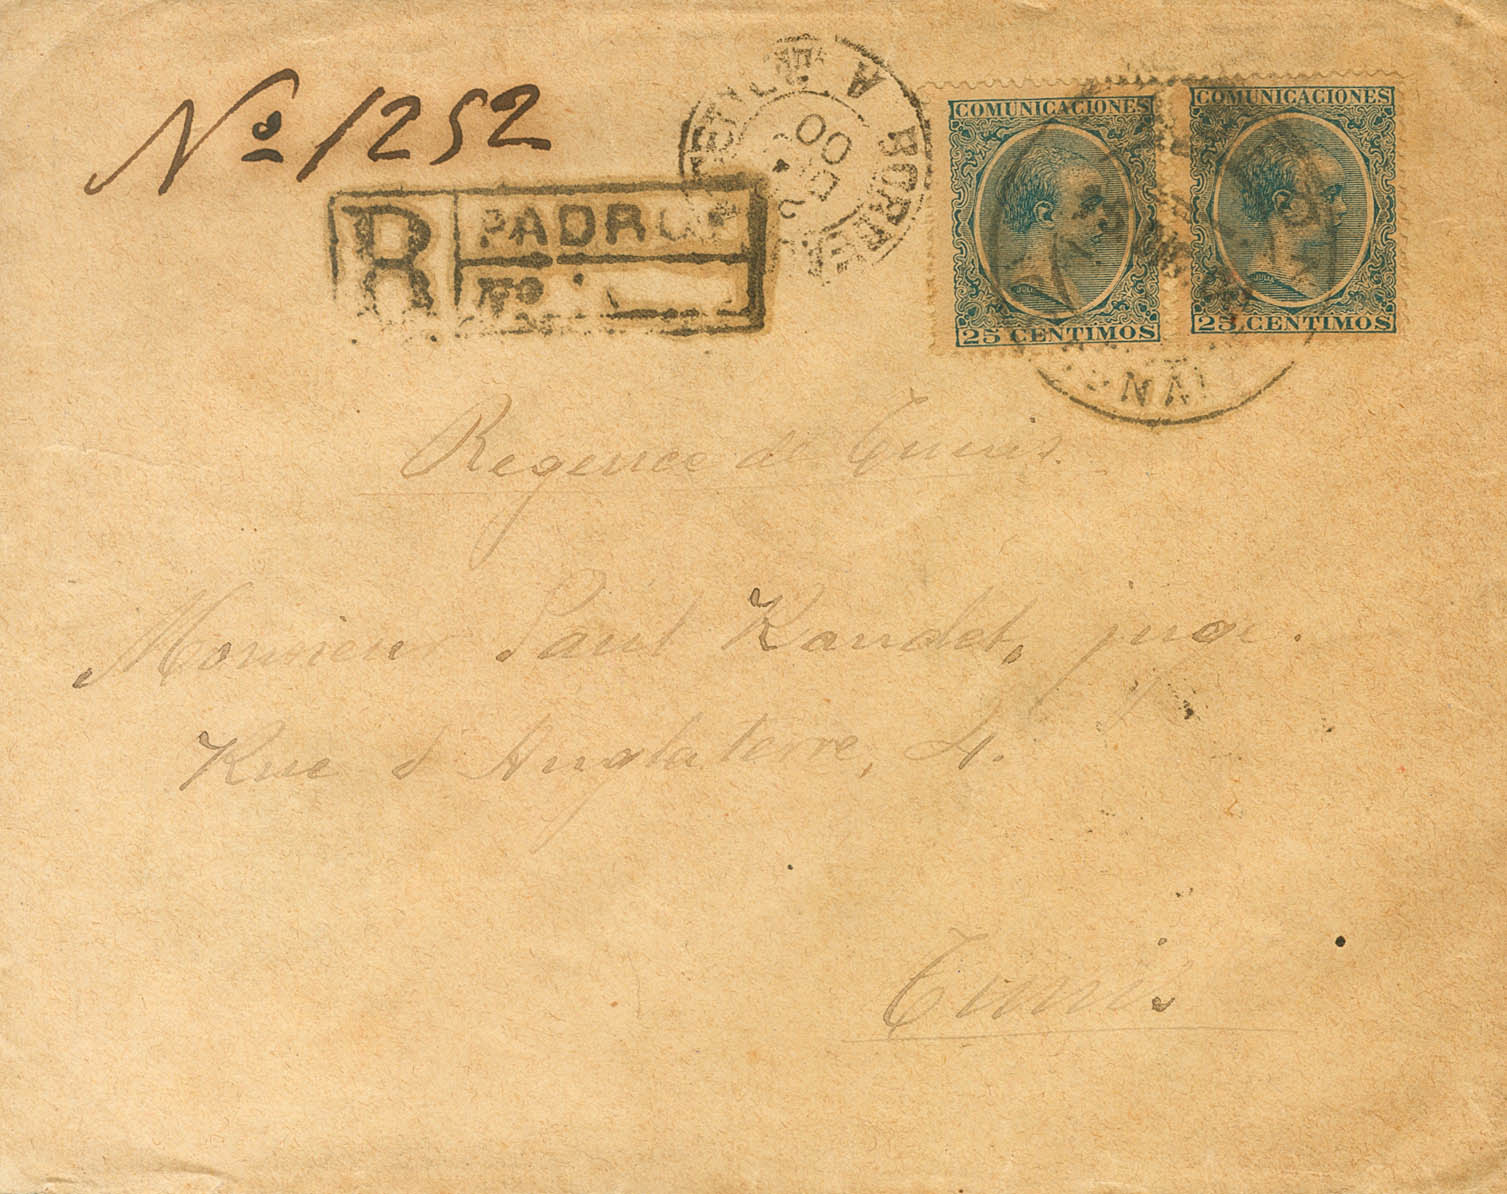 Nº 1252
R PADRON
Nº
COMUNICACIONES
25 CENTIMOS
COMUNICACIONES
25 CENTIMOS
Regence de Tunis.
Monsieur Paul Kaudet, juge.
Rue d'Anglaterre, 4.
Tunis